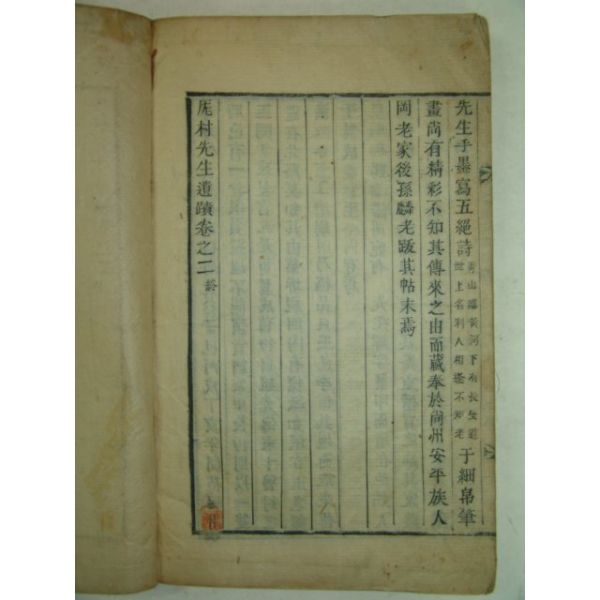 先生手墨寫五絕詩
山黃河下有長生道
世上名利人相逢不知老
于細帛筆
畫尚有精彩不知其傳來之由而藏奉於尙州安平族人
岡老家後孫麟老跋其帖末焉
厖村先生遺蹟卷之二 終